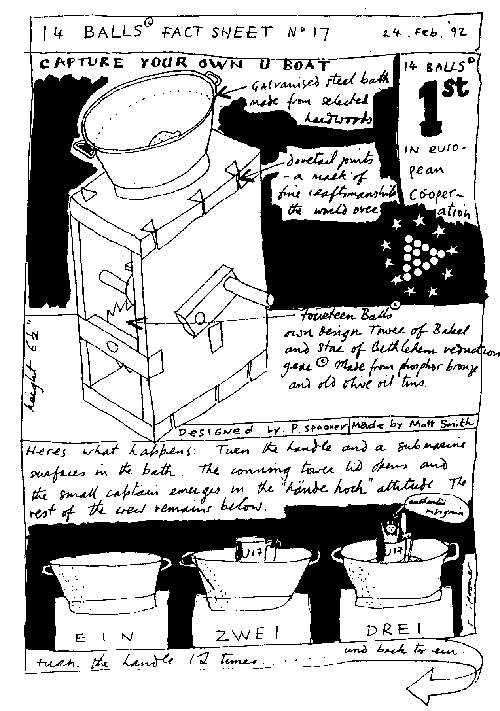 14 BALLS© FACT SHEET Nº 17
24. Feb. '92
CAPTURE YOUR OWN U BOAT
14 BALLS©
1st
IN euro-
pean
cooper-
ation
Galvanised steel bath
made from selected
hardwoods
dovetail joints
- a mark of
fine craftsmanship
the world over
Fourteen Balls'
own design Tower of Babel
and Star of Bethlehem reduction
gear © Made from phosphor bronze
and old olive oil tins.
Designed by P. Spooner Made by Matt Smith
Heres what happens: Turn the handle and a submarine
surfaces in the bath. The conning tower lid opens and
the small captain emerges in the "hände hoch" attitude. The
rest of the crew remains below.
authentic
U17
U17
EIN
ZWEI
DREI
turn the handle 12 times. . . . .
and back to ein